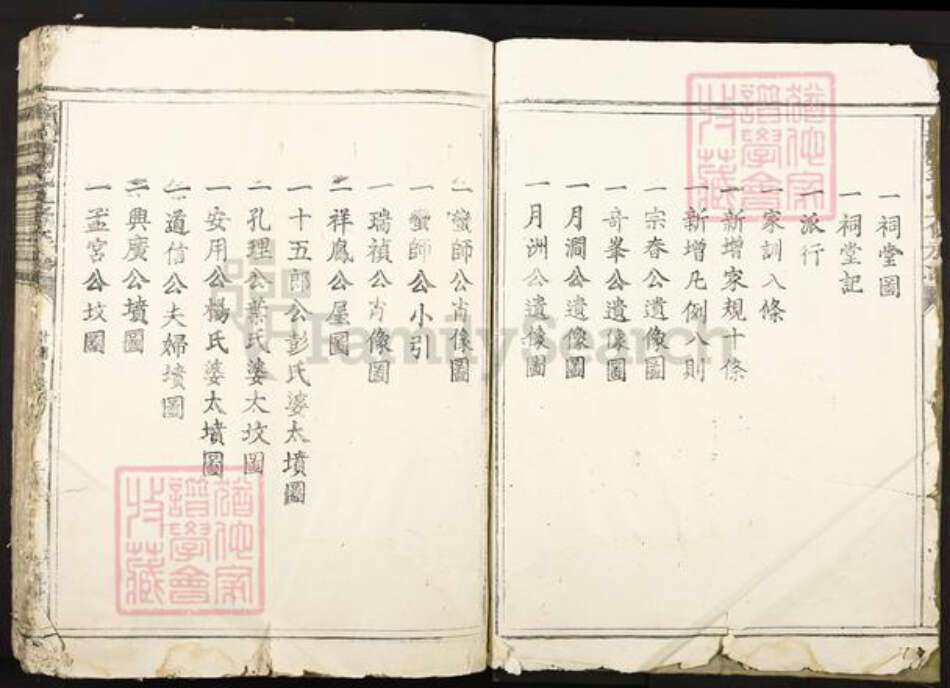 一祠堂圖
一祠堂記
一派行
一家訓八條
一新增家規十條
一新增凡例八則
一宗春公遺像圖
一奇峯公遺像圖
一月澗公遺像圖
一月洲公遺像圖
一蠻師公肖像圖
一蠻師公小引
一瑞禎公肖像圖
一祥鳳公屋圖
一十五郎公彭氏婆太墳圖
一孔理公葉氏婆太坟圖
一安用公楊氏婆太墳圖
一道信公夫婦墳圖
一興廣公墳圖
一孟宮公坟圖
猶他家譜學會收藏
猶他家譜學會收藏
FamilySearch